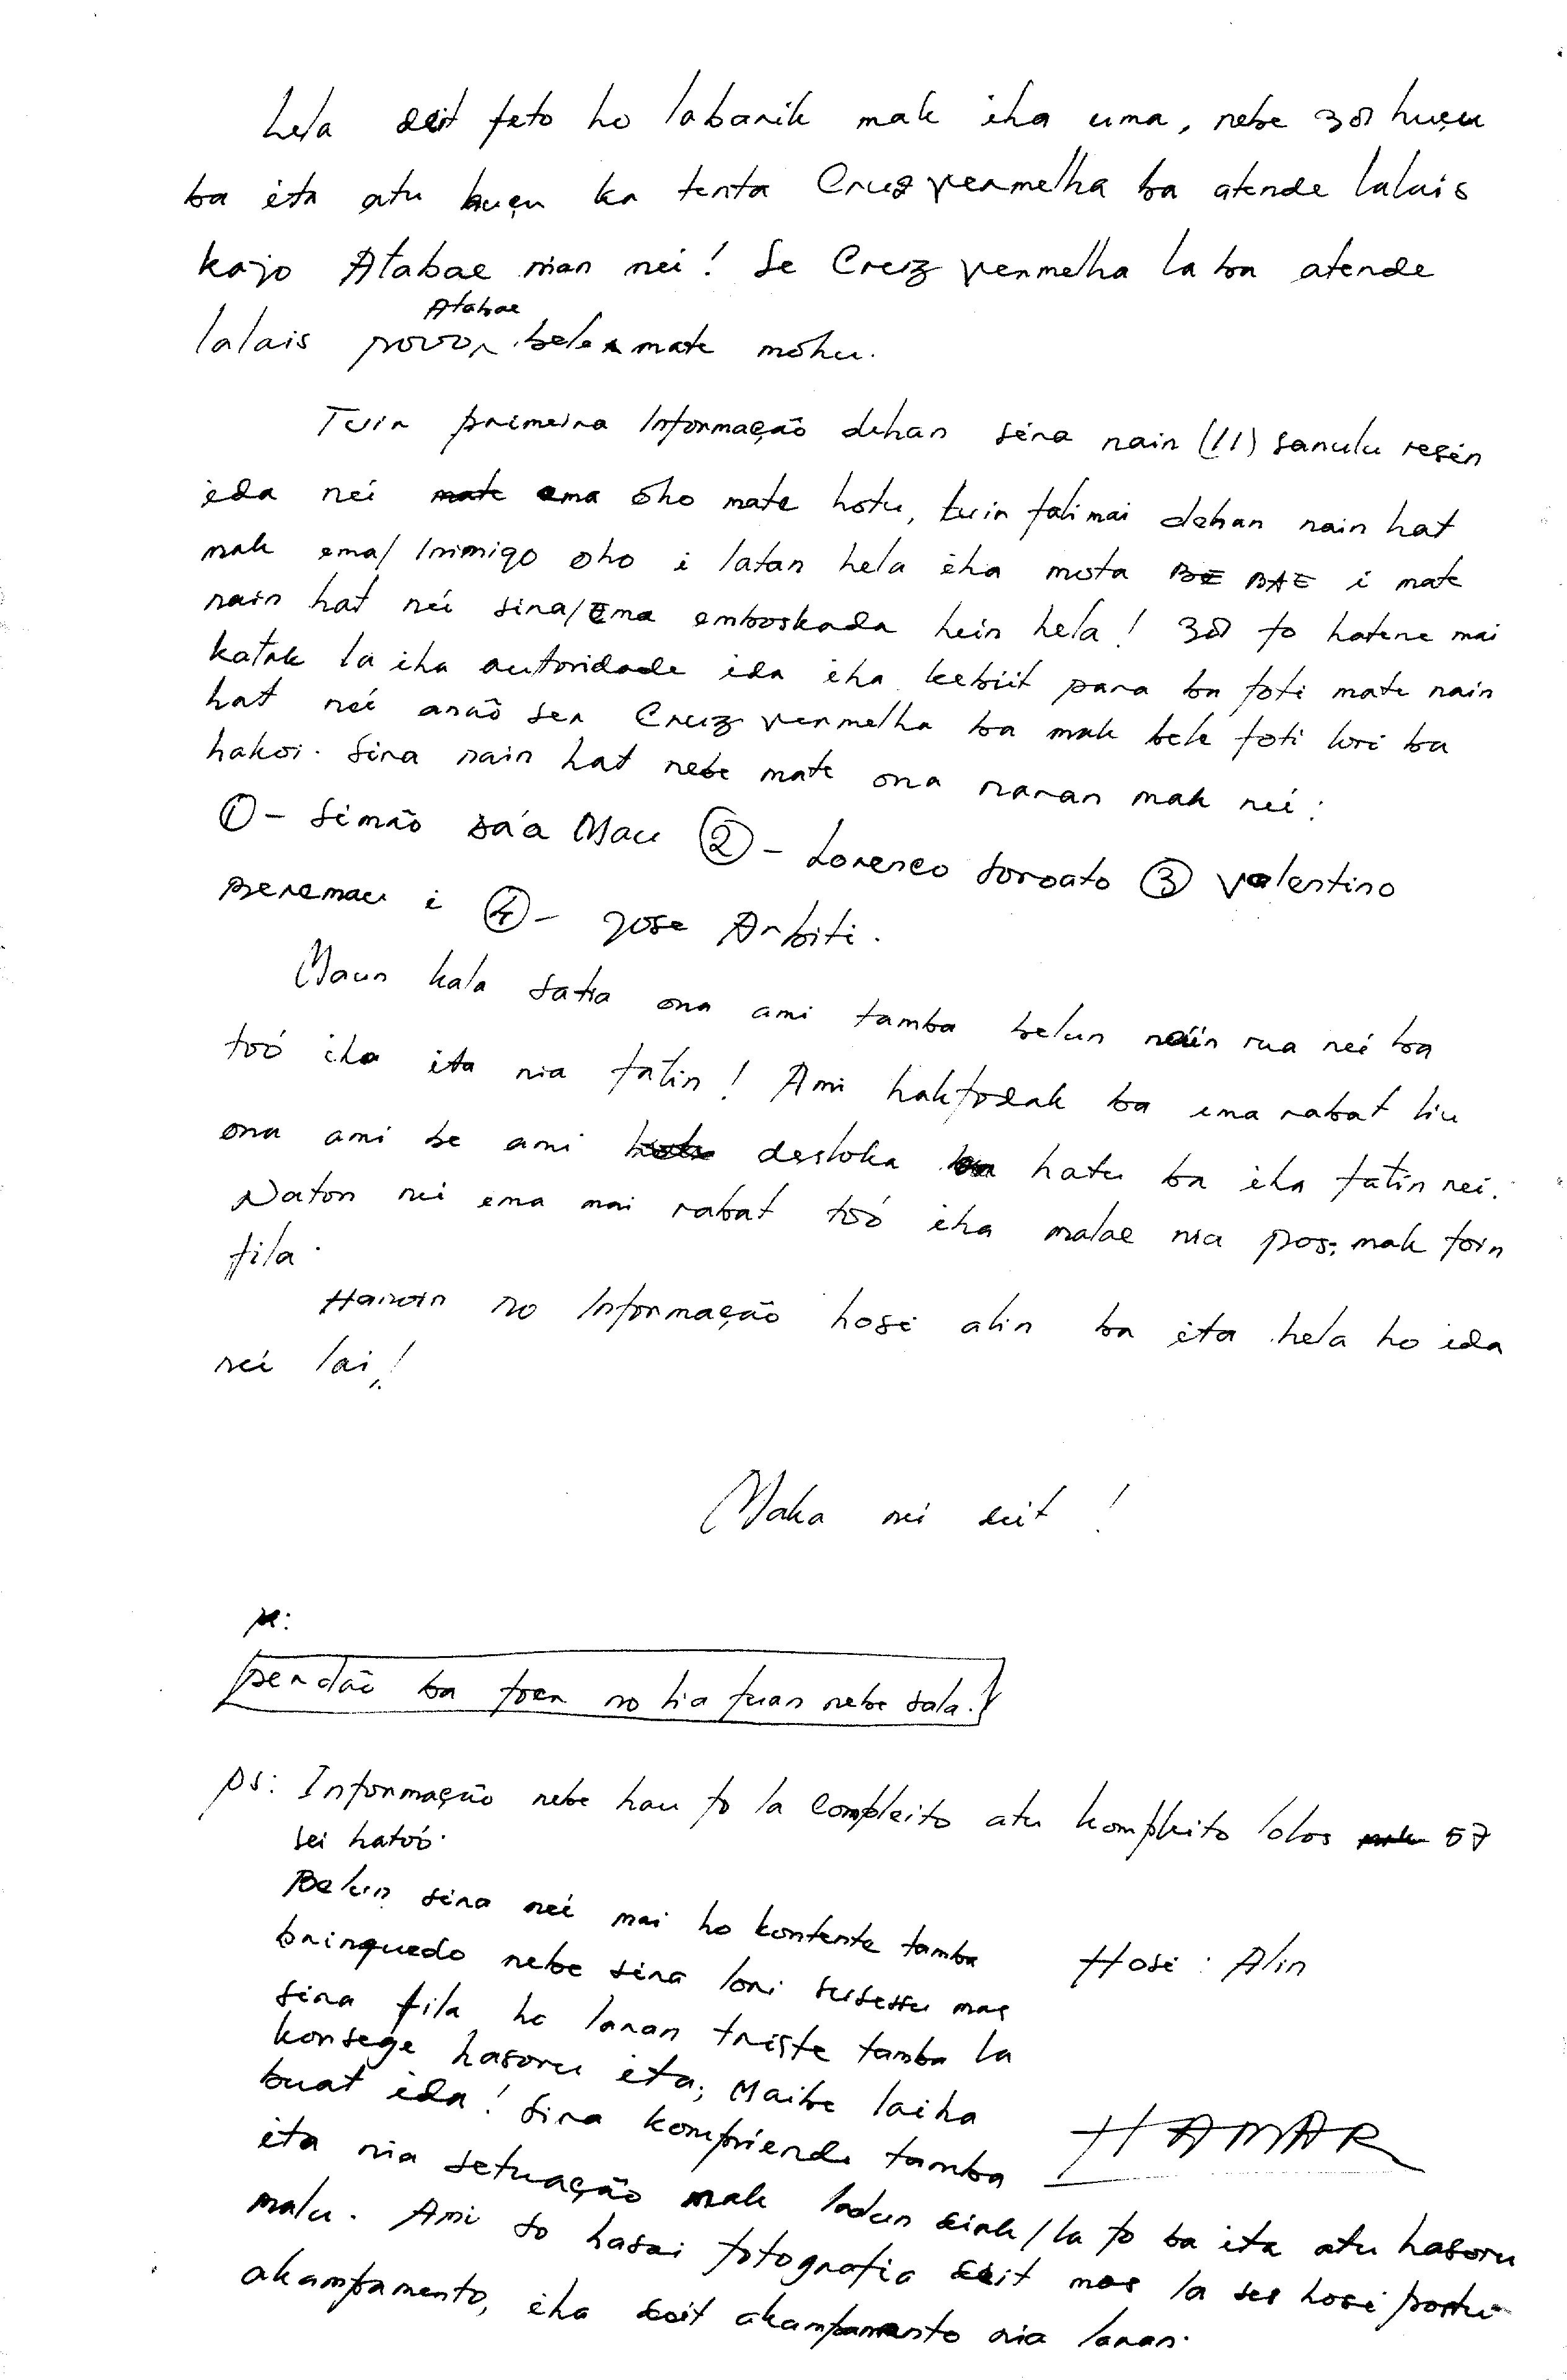 hela deit feto ho labarik mak iha uma, nebe 307 huçu
ba ita atu huçu ka tenta Cruz vermelha ba atende lalais
kazo Atabae nian nei! Se Cruz vermelha la ba atende
lalais povo Atabae bele mate mohu.
Tuir primeira Informação dehan sira nain (11) sanulu resin
ida nei ema oho mate hotu, tuir fali mai dehan nain hat
mak ema/Inimigo oho i latan hela iha mota BE BAE i mate
nain hat nei sira/Ema emboskada hein hela! 307 fo hatene mai
katak la iha autoridade ida iha kebiit para ba foti mate nain
hat nei anaõ ser Cruz vermelha ba mak bele foti lori ba
hakoi. Sira nain hat nebe mate ona naran mak nei:
① - Simão Sa'a Mau ② - Lorenco Soroato ③ Valentino
Peremau i ④ - Jose Arbiti.
Maun kala satia ona ami tamba belun nain rua nei ba
toó iha ita nia fatin! Ami hakfodak ba ema rabat liu
ona ami be ami desloka hatu ba iha fatin nei.
Naton nei ema mai rabat toó iha malae nia pos, mak foin
fila.
Hanoin no Informação hosi alin ba ita hela ho ida
nei lai!
Maka nei deit!
ps:
perdão ba foer no lia fuan nebe sala!
ps: Informação nebe hau fo la compleito atu kompleito lolos 57
sei hatoó.
Belun sira nei mai ho kontente tamba
brinquedo nebe sira lori susessu mas
sira fila ho laran triste tamba la
konsege hasoru ita; Maibe laiha
buat ida! Sira kompriende tamba
ita nia setuação mak ladun diak/la fo ba ita atu hasoru
malu. Ami so hasai fotografia deit mos la ses hosi portu
akampamento, iha deit akampamento nia laran.
Hosi: Alin
HAMAR